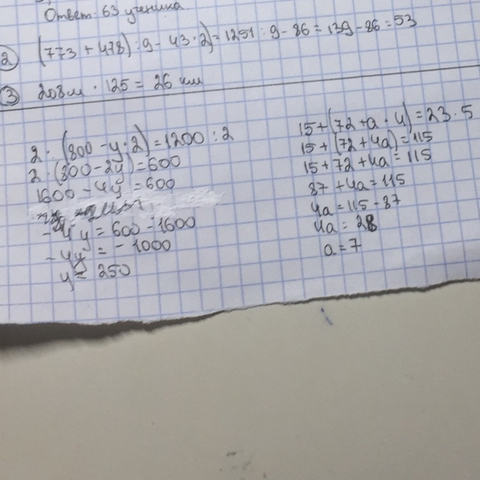 Ответ: 63 ученика
2 (773 + 478) : 9 - 43 · 2) = 1251 : 9 - 86 = 139 - 86 = 53
3 208м · 125 = 26 км
2 · (800 - y · 2) = 1200 : 2
2 · (800 - 2y) = 600
1600 - 4y = 600
- 4y = 600 - 1600
- 4y = - 1000
y = 250
15 + (72 + a · 4) = 23 · 5
15 + (72 + 4a) = 115
15 + 72 + 4a = 115
87 + 4a = 115
4a = 115 - 87
4a = 28
a = 7